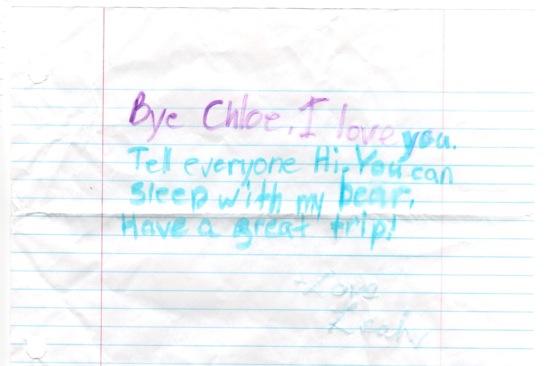 Bye Chloe, I love you.
Tell everyone Hi. You can
sleep with my bear.
Have a great trip!
-Love
Leah